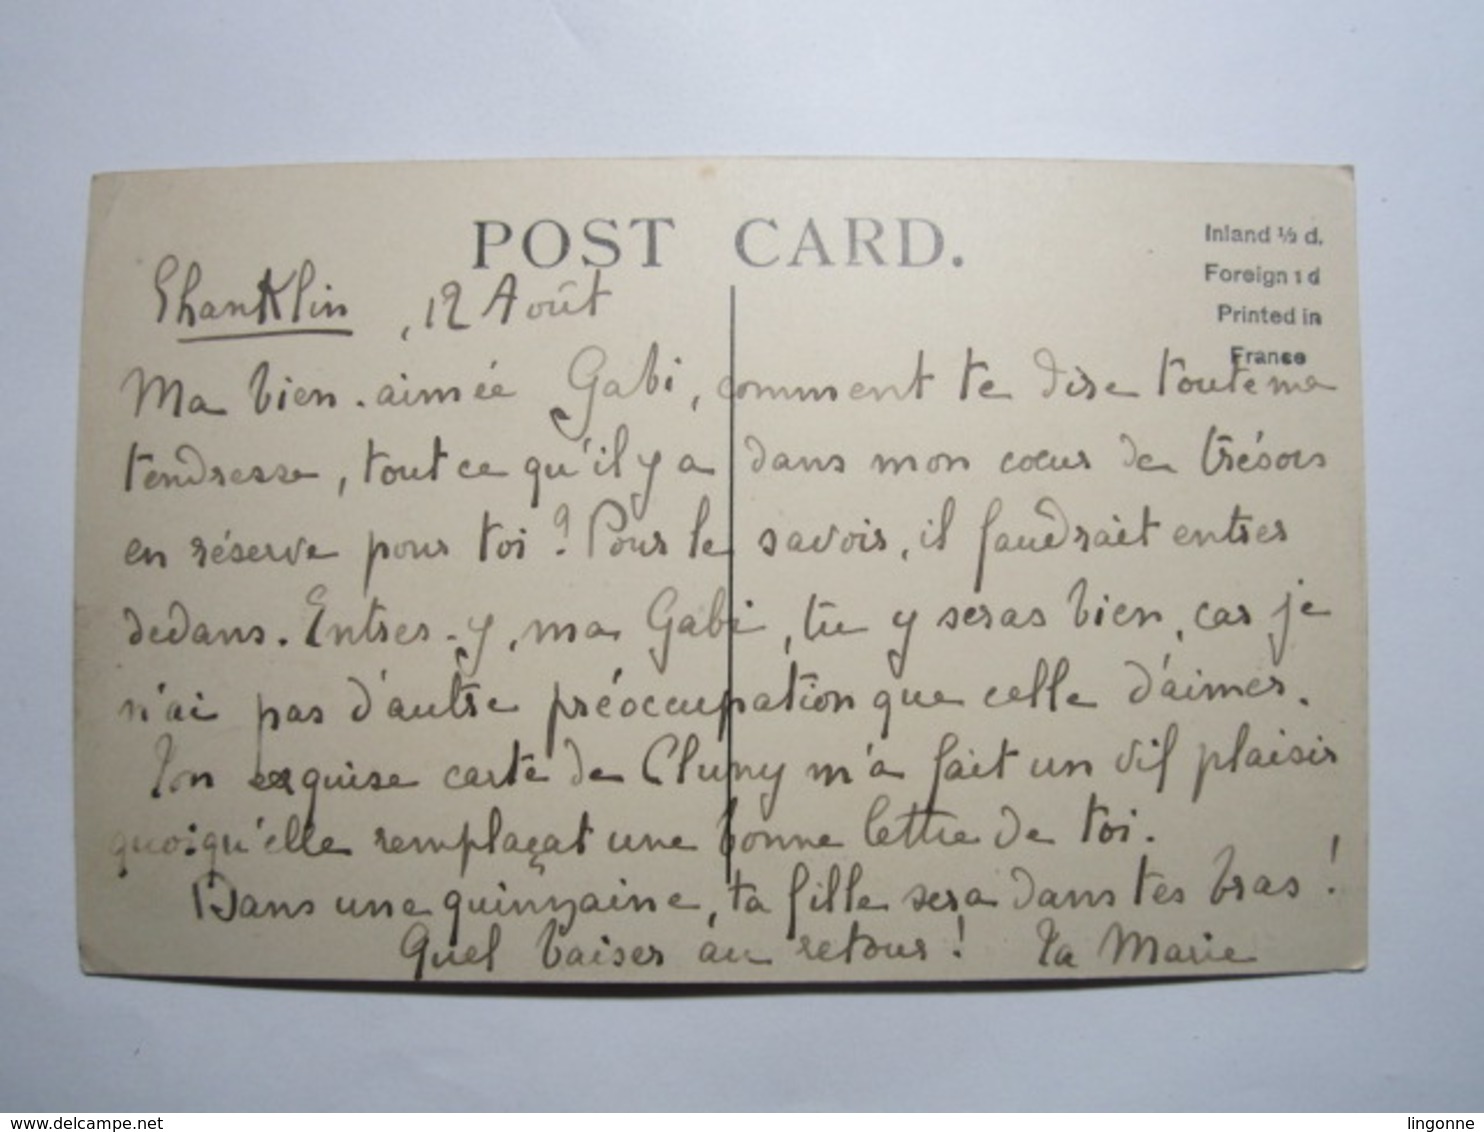 POST CARD.
Inland ½ d.
Foreign 1 d
Printed in
France
Shanklin, 12 Août
Ma bien-aimée Gabi, comment te dire toute ma
tendresse, tout ce qu'il y a dans mon cœur de trésors
en réserve pour toi ? Pour le savoir, il faudrait entrer
dedans. Entres-y, ma Gabi, tu y seras bien, car je
n'ai pas d'autre préoccupation que celle d'aimer.
Ton exquise carte de Cluny m'a fait un vif plaisir
quoiqu'elle remplaçat une bonne lettre de toi.
Dans une quinzaine, ta fille sera dans tes bras !
Quel baiser au retour ! Ta Marie
www.delcampe.net
lingonne